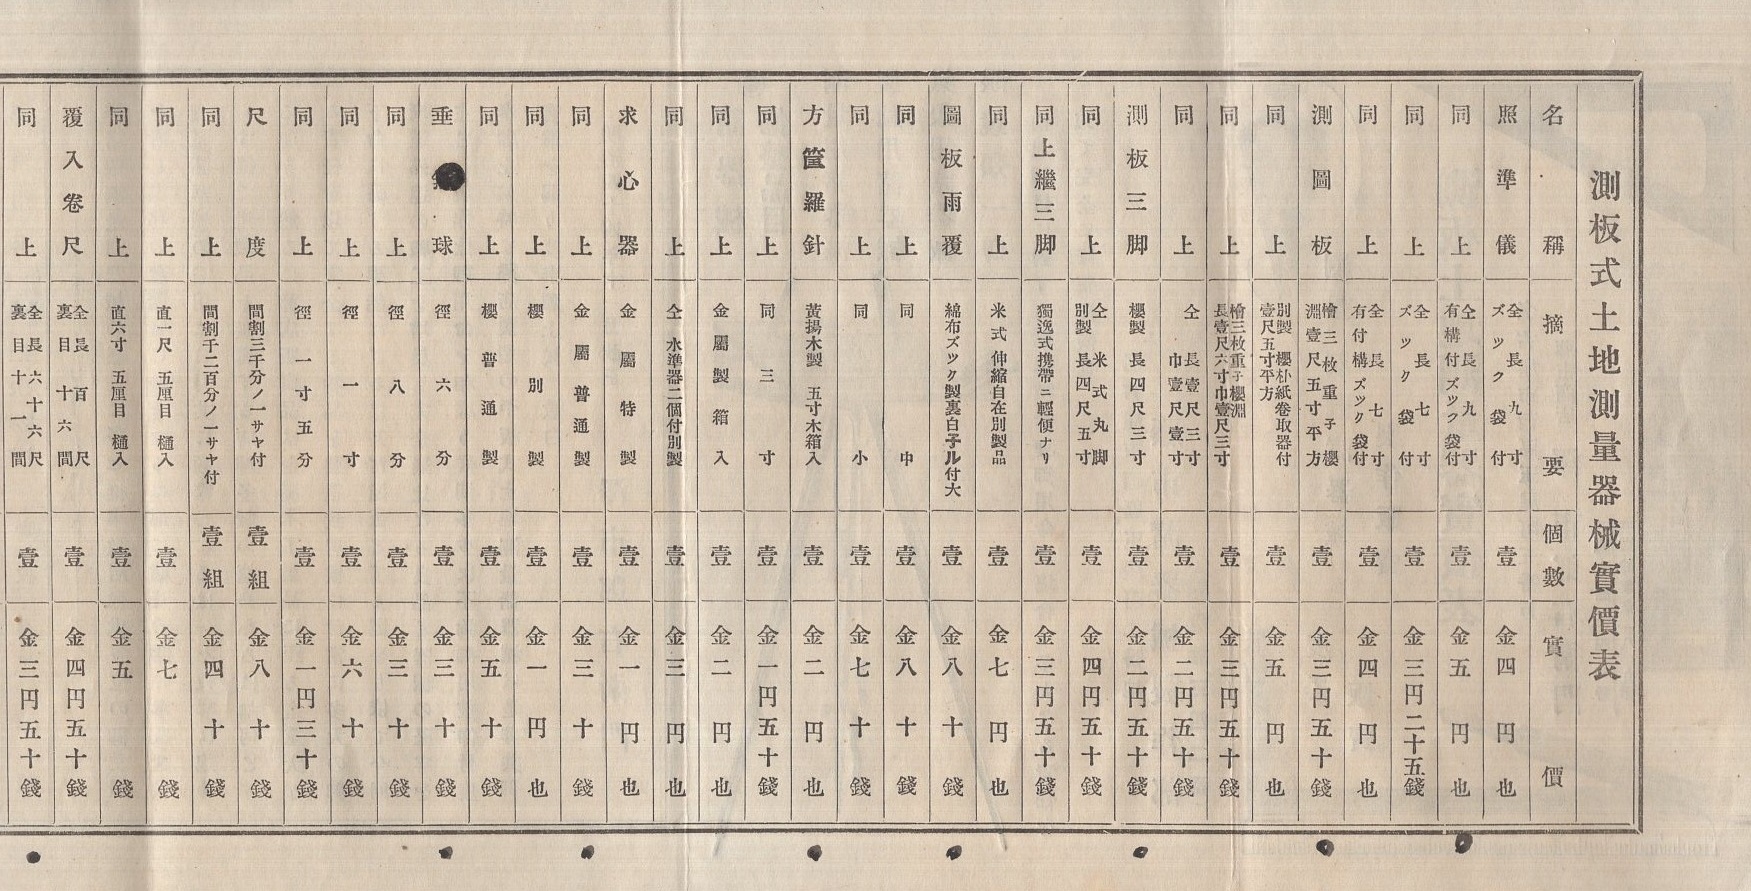 測板式土地測量器械實價表
名稱 摘要 個數 實價
照準儀 仝長九寸 ズツク袋付 壹 金四円也
同上 仝長九寸 有構付ズツク袋付 壹 金五円也
同上 仝長七寸 ズツク袋付 壹 金三円二十五錢
同上 仝長七寸 有付構ズツク袋付 壹 金四円也
測圖板 檜三枚重子櫻淵壹尺五寸平方 壹 金三円五十錢
同上 別製櫻朴紙卷取器付 壹尺五寸平方 壹 金五円也
同上 檜三枚重子櫻淵 長壹尺六寸巾壹尺三寸 壹 金三円五十錢
同上 仝 長壹尺三寸 巾壹尺壹寸 壹 金二円五十錢
測板三脚 櫻製長四尺三寸 壹 金二円五十錢
同上 仝米式丸脚 別製長四尺五寸 壹 金四円五十錢
同上繼三脚 獨逸式携帶ニ輕便ナリ 壹 金三円五十錢
同上 米式伸縮自在別製品 壹 金七円也
圖板雨覆 綿布ズツク製裏白子ル付大 壹 金八十錢
同上 同中 壹 金八十錢
同上 同小 壹 金七十錢
方筐羅針 黃揚木製 五寸木箱入 壹 金二円也
同上 同三寸 壹 金一円五十錢
同上 金屬製箱入 壹 金二円也
同上 仝水準器二個付別製 壹 金三円也
求心器 金屬特製 壹 金一円也
同上 金屬普通製 壹 金三十錢
同上 櫻別製 壹 金一円也
同上 櫻普通製 壹 金五十錢
垂球 徑六分 壹 金三十錢
同上 徑八分 壹 金三十錢
同上 徑一寸 壹 金六十錢
同上 徑一寸五分 壹 金一円三十錢
尺度 間割三千分ノ一サヤ付 壹組 金八十錢
同上 間割千二百分ノ一サヤ付 壹組 金四十錢
同上 直一尺 五厘目 樋入 壹 金七錢
同上 直六寸 五厘目 樋入 壹 金五錢
覆入卷尺 仝長百尺 裏目十六間 壹 金四円五十錢
同上 仝長六十六尺 裏目十一間 壹 金三円五十錢